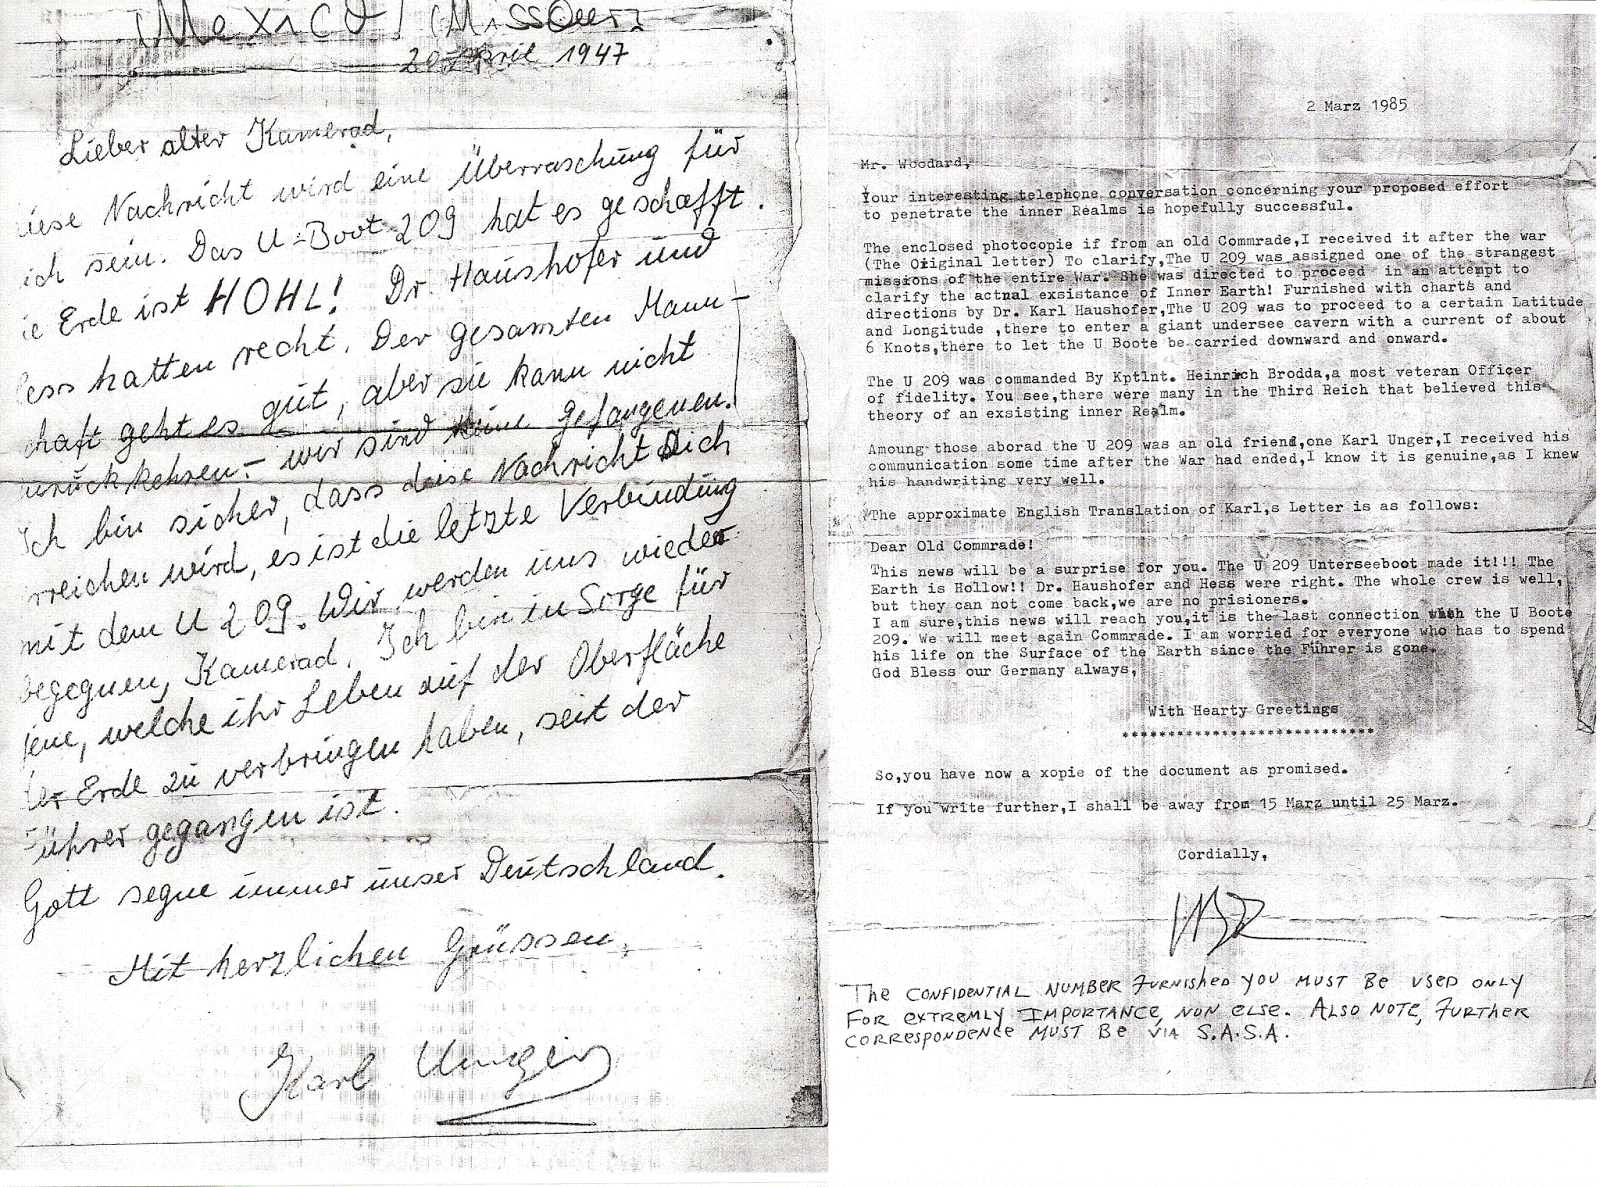 Mexico / Missouri
20 April 1947
Lieber alter Kamerad,
iese Nachricht wird eine Überraschung für
ich sein. Das U-Boot 209 hat es geschafft.
ie Erde ist HOHL! Dr Haushofer und
ess hatten recht. Der gesamten Mann-
chaft geht es gut, aber sie kann nicht
zurückkehsen. - wir sind keine Gefangenen.
Ich bin sicher, dass diese Nachricht Dich
rreichen wird, es ist die letzte Verbindung
mit dem U 209. Wir werden uns wieder
begegnen, Kamerad. Ich bin in Sorge für
jene, welche ihr Leben auf der Oberfläche
der Erde zu verbringen haben, seit der
Führer gegangen ist.
Gott segne immer unser Deutschland.
Mit herzlichen Grüssen,
Karl Unger
2 Marz 1985
Mr. Woodard,
Your interesting telephone conversation concerning your proposed effort
to penetrate the inner Realms is hopefully successful.
The enclosed photocopie if from an old Commrade,I received it after the war
(The Original letter) To clarify,The U 209 was assigned one of the strangest
missions of the entire War. She was directed to proceed in an attempt to
clarify the actnal exsistance of Inner Earth! Furnished with charts and
directions by Dr. Karl Haushofer,The U 209 was to proceed to a certain Latitude
and Longitude ,there to enter a giant undersee cavern with a current of about
6 Knots,there to let the U Boote be carried downward and onward.
The U 209 was commanded By Kptlnt. Heinrich Brodda,a most veteran Officer
of fidelity. You see,there were many in the Third Reich that believed this
theory of an exsisting inner Realm.
Amoung those aborad the U 209 was an old friend,one Karl Unger,I received his
communication some time after the War had ended,I know it is genuine,as I knew
his handwriting very well.
The approximate English Translation of Karl,s Letter is as follows:
Dear Old Commrade!
This news will be a surprise for you. The U 209 Unterseeboot made it!!! The
Earth is Hollow!! Dr. Haushofer and Hess were right. The whole crew is well,
but they can not come back,we are no prisioners.
I am sure,this news will reach you,it is the last connection with the U Boote
209. We will meet again Commrade. I am worried for everyone who has to spend
his life on the Surface of the Earth since the Führer is gone.
God Bless our Germany always,
With Hearty Greetings
****************************
So,you have now a xopie of the document as promised.
If you write further,I shall be away from 15 Marz until 25 Marz.
Cordially,
THE CONFIDENTIAL NUMBER FURNISHED YOU MUST BE USED ONLY
FOR EXTREMLY IMPORTANCE, NON ELSE. ALSO NOTE, FURTHER
CORRESPONDENCE MUST BE VIA S.A.S.A.